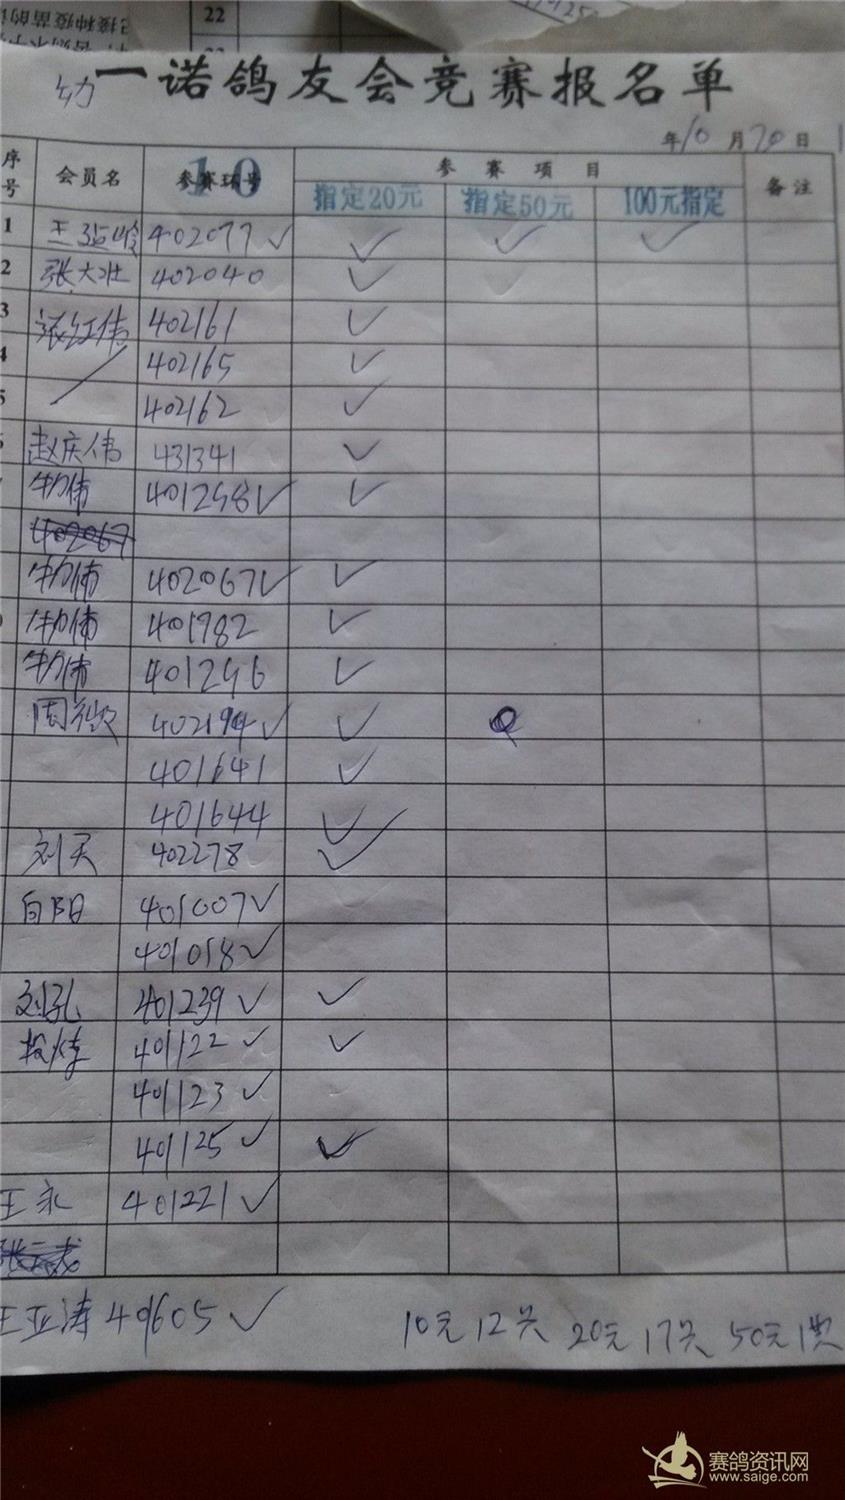 22
一诺鸽友会竞赛报名单
幼
年10月20日
序号 会员名 参赛环号 10 参赛项目 备注
指定20元 指定50元 100元指定
1 402077 ✓ ✓ ✓ ✓
2 张大壮 402040 ✓
3 张红伟 402161 ✓
4 402165 ✓
5 402162 ✓
赵庆伟 431341 ✓
牛力伟 401298 ✓ ✓
402067
牛力伟 402067 ✓ ✓
牛力伟 401982 ✓
牛力伟 401296 ✓
402194 ✓ ✓
401641 ✓
401644 ✓
刘天 402278 ✓
向阳 401007 ✓
401018 ✓
刘孔 401239 ✓ ✓
401122 ✓ ✓
401123 ✓
401125 ✓ ✓
王永 401221 ✓
王亚涛 401605 ✓
10元12只 20元17只 50元1只
赛鸽资讯网
www.saige.com